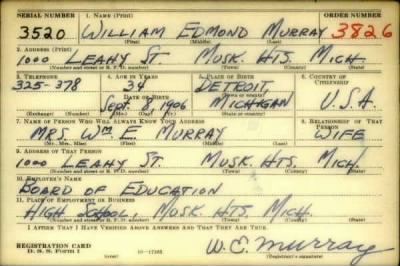 SERIAL NUMBER 1. NAME (Print) ORDER NUMBER
3520 WILLIAM EDMOND MURRAY 3826
(First) (Middle) (Last)
2. ADDRESS (Print)
1000 LEAHY ST. MUSK. HTS. MICH.
(Number and street or R. F. D. number) (Town) (County) (State)
3. TELEPHONE 4. AGE IN YEARS 5. PLACE OF BIRTH 6. COUNTRY OF CITIZENSHIP
325-378 34 DETROIT
DATE OF BIRTH
Sept. 8, 1906 MICHIGAN U.S.A.
(Exchange) (Number) (Mo.) (Day) (Yr.) (State or country)
7. NAME OF PERSON WHO WILL ALWAYS KNOW YOUR ADDRESS 8. RELATIONSHIP OF THAT PERSON
MRS. WM. E. MURRAY WIFE
(Mr., Mrs., Miss) (First) (Middle) (Last)
9. ADDRESS OF THAT PERSON
1000 LEAHY ST. MUSK. HTS. MICH.
(Number and street or R. F. D. number) (Town) (County) (State)
10. EMPLOYER'S NAME
BOARD OF EDUCATION
11. PLACE OF EMPLOYMENT OR BUSINESS
HIGH SCHOOL, MUSK. HTS. MICH.
(Number and street or R. F. D. number) (Town) (County) (State)
I AFFIRM THAT I HAVE VERIFIED ABOVE ANSWERS AND THAT THEY ARE TRUE.
REGISTRATION CARD
D. S. S. Form 1 W. E. Murray